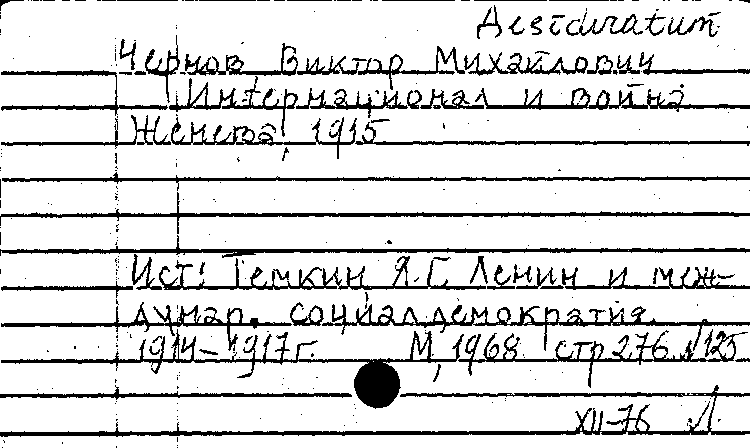 Desiduratum
Чернов Виктор Михайлович
Интернационал и война
Женева, 1915
Ист: Темкин, Я.Г. Ленин и меж-
дунар. социалдемократия.
1914-1917 г. М, 1968 стр 276 №125
XII-76 Л.